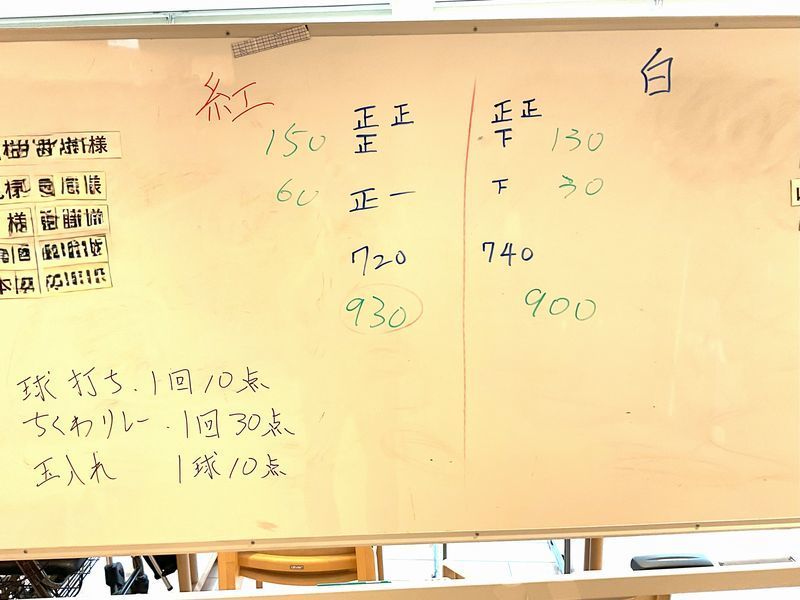 紅
白
150 正正 正
正正 下 130
60 正一
下 30
720
740
930
900
球打ち.1回10点
ちくわリレー.1回30点
玉入れ 1球10点